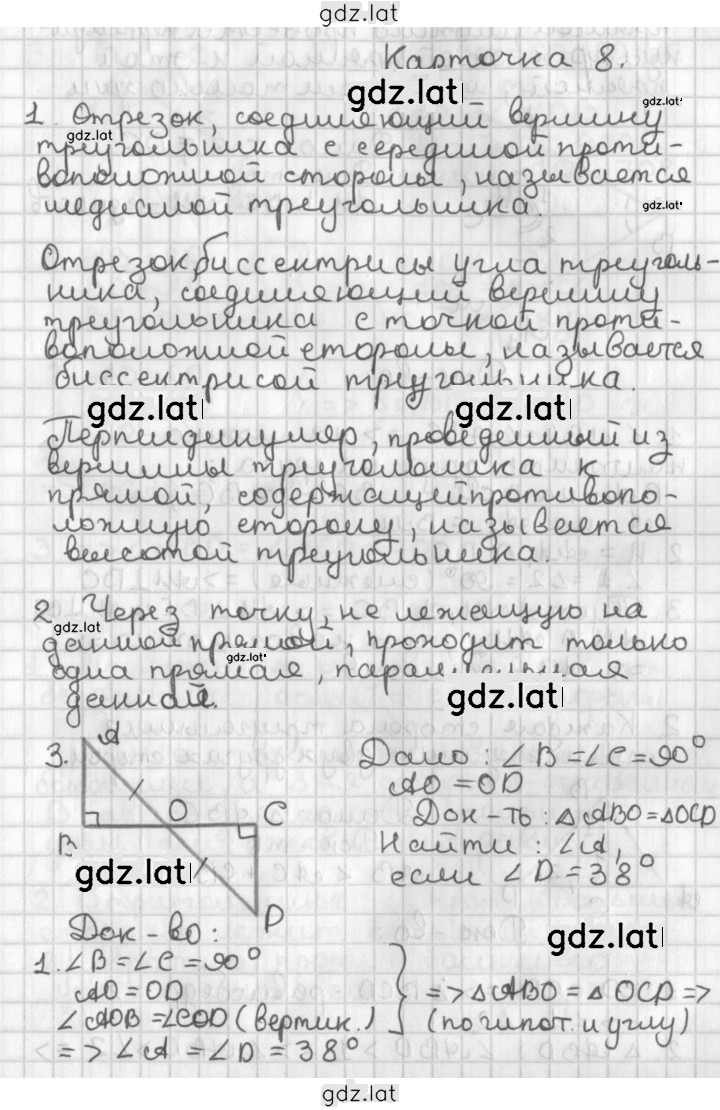 gdz.lat
Карточка 8.
gdz.lat
gdz.lat
1. Отрезок, соединяющий вершину
gdz.lat
треугольника с серединой проти-
воположной стороны, называется
медианой треугольника.
gdz.lat
Отрезок биссектрисы угла треуголь-
ника, соединяющий вершину
треугольника с точкой проти-
воположной стороны, называется
биссектрисой треугольника.
gdz.lat
gdz.lat
Перпендикуляр, проведенный из
вершины треугольника к
прямой, содержащей противопо-
ложную сторону, называется
высотой треугольника.
2. Через точку, не лежащую на
gdz.lat
данной прямой, проходит только
gdz.lat
одна прямая, параллельная
данной.
gdz.lat
3.
A
O
C
B
D
Дано: ∠B = ∠C = 90°
AO = OD
Док-ть: △ABO = △OCD
Найти: ∠A,
если ∠D = 38°
gdz.lat
Док-во:
gdz.lat
1. ∠B = ∠C = 90°
AO = OD
∠AOB = ∠COD (вертик.)
=> △ABO = △OCD =>
(по гипот. и углу)
=> ∠A = ∠D = 38°
gdz.lat